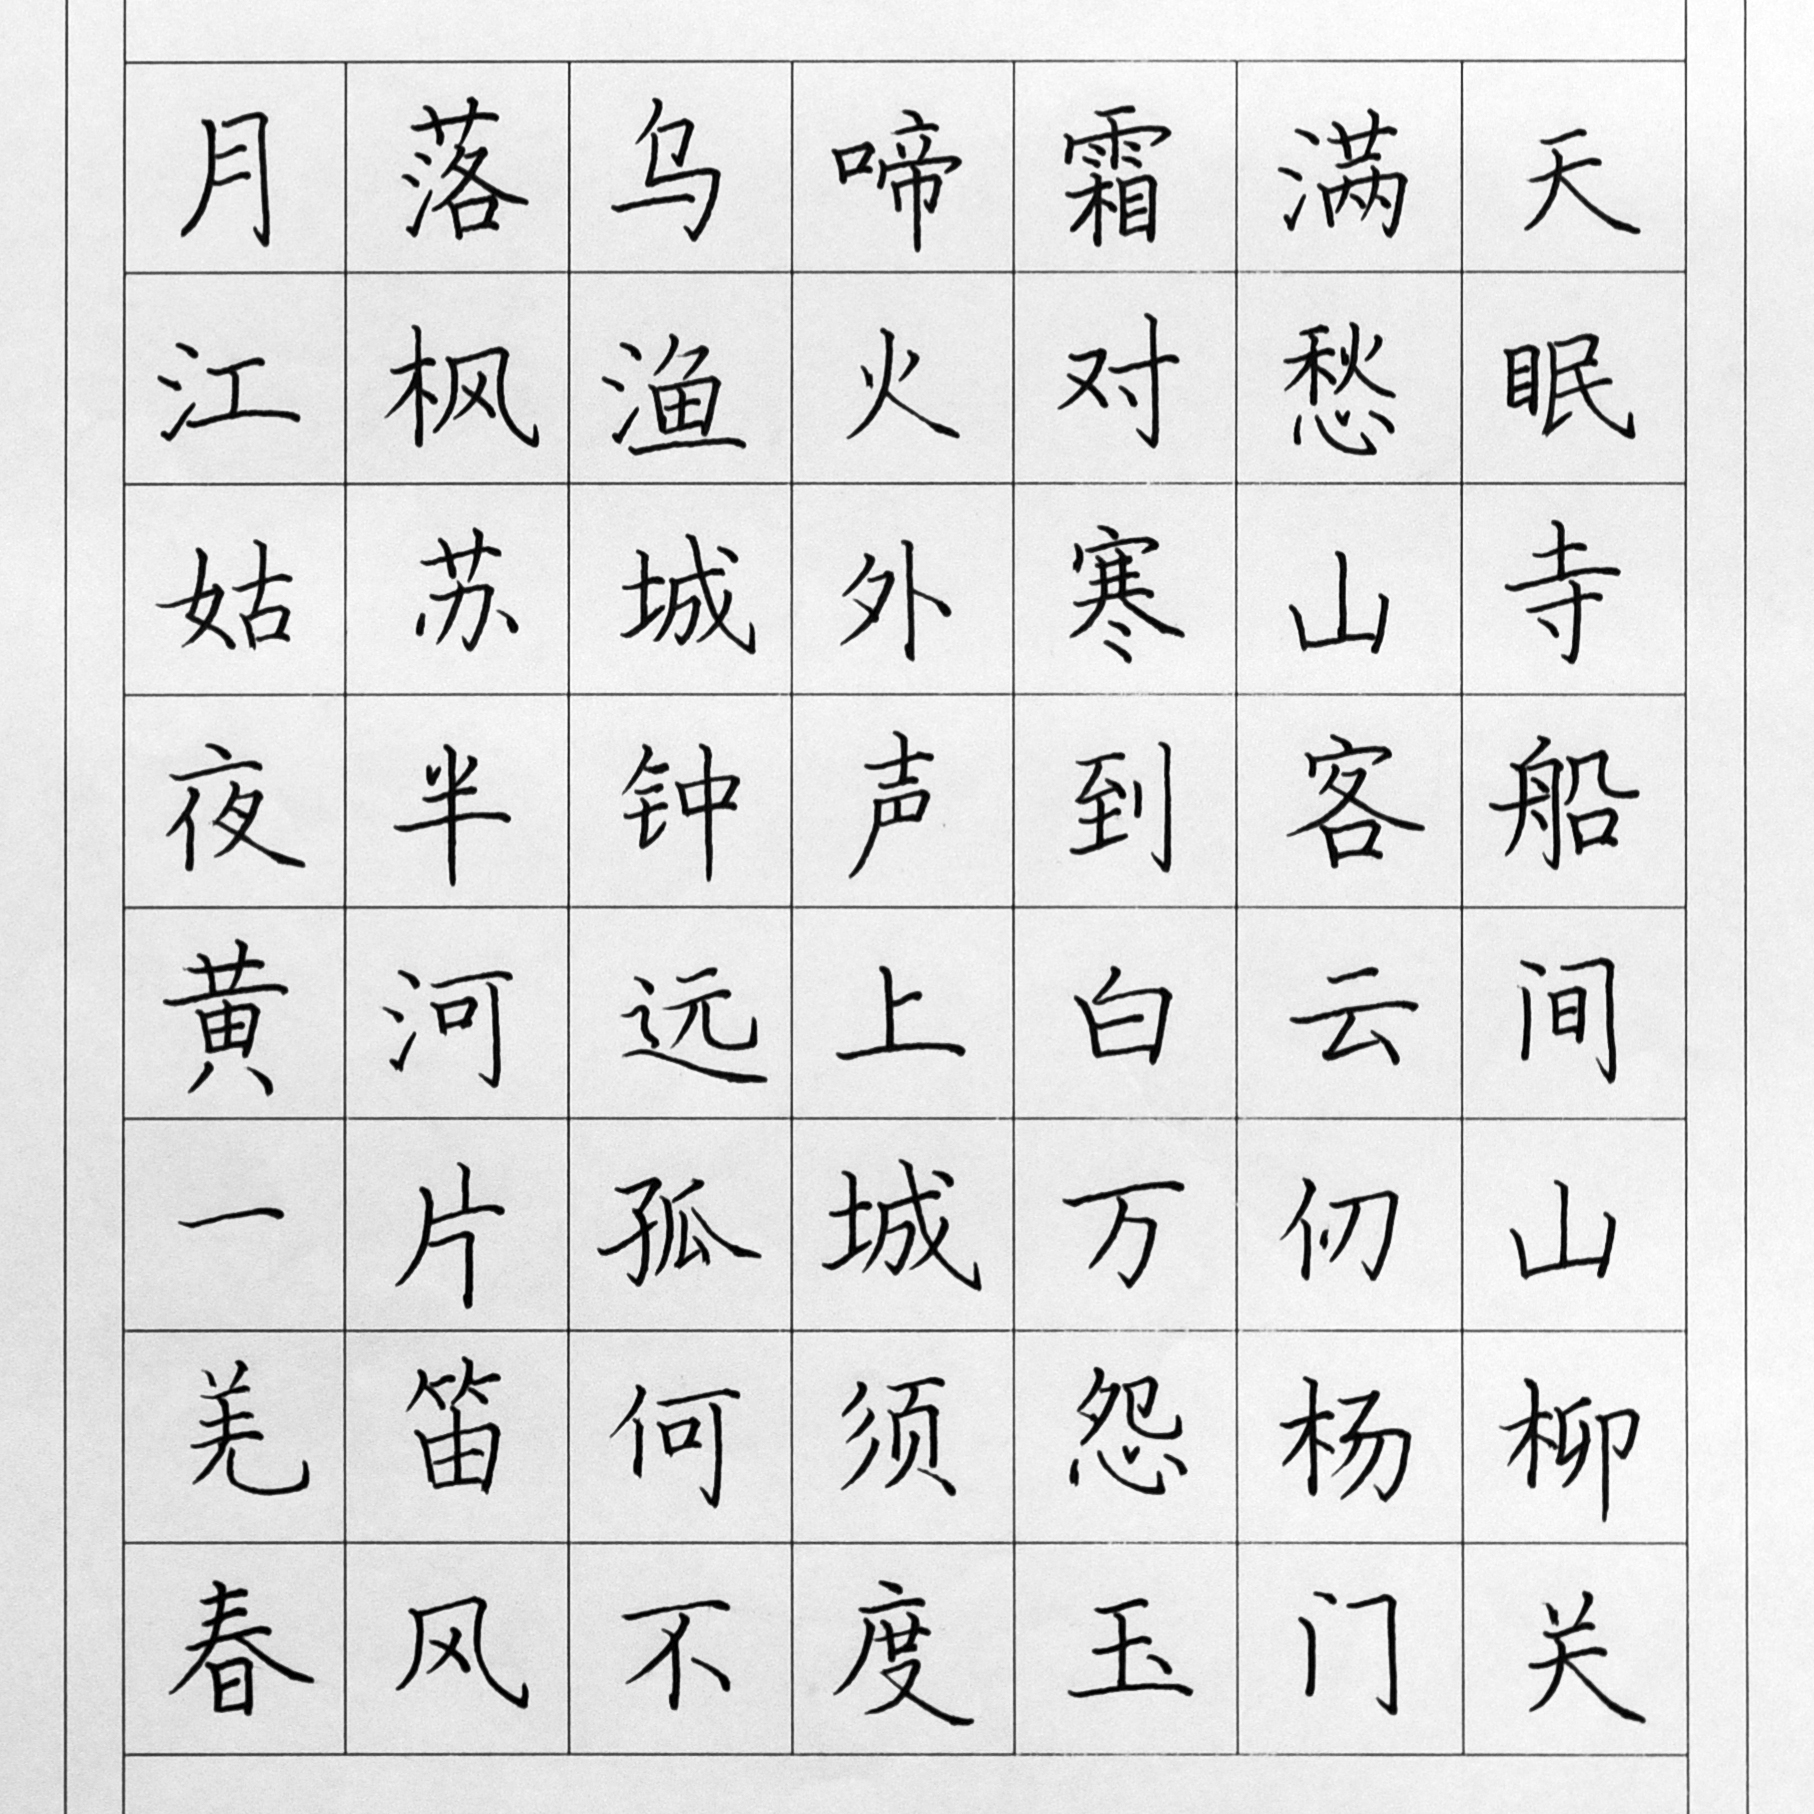 月落乌啼霜满天
江枫渔火对愁眠
姑苏城外寒山寺
夜半钟声到客船
黄河远上白云间
一片孤城万仞山
羌笛何须怨杨柳
春风不度玉门关